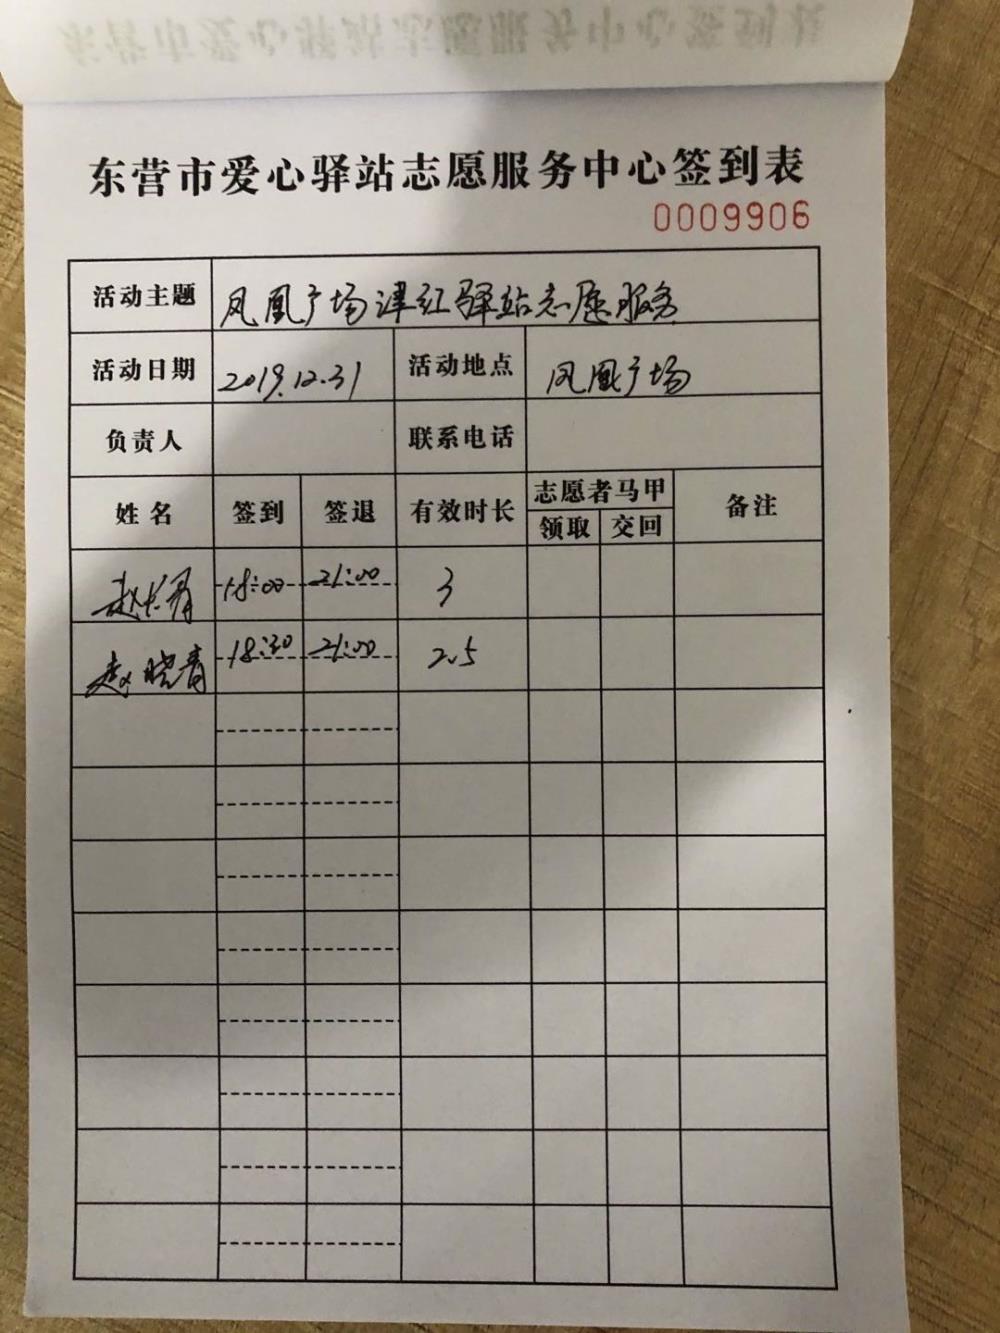 东营市爱心驿站志愿服务中心签到表
0009906
活动主题 凤凰广场津红驿站志愿服务
活动日期 2019.12.31 活动地点 凤凰广场
负责人 联系电话
姓名 签到 签退 有效时长 志愿者马甲 备注
领取 交回
赵长 18:00 21:00 3
赵晓青 18:30 21:00 2.5